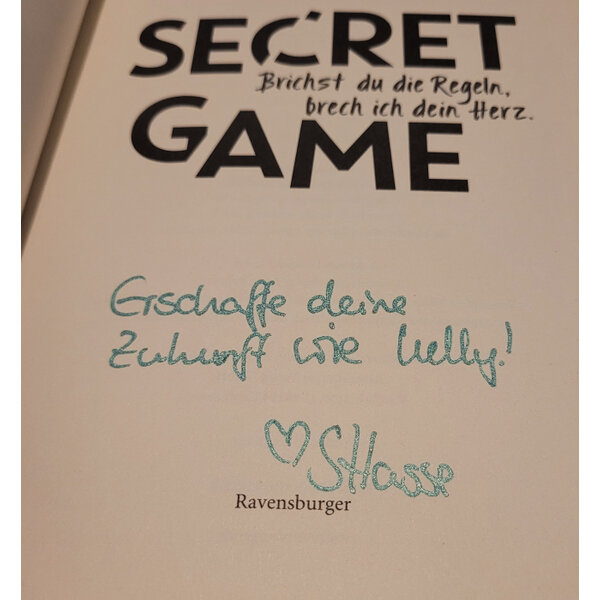 SECRET
Brichst du die Regeln,
brech ich dein Herz.
GAME
Erschaffe deine
Zukunft wie Kelly!
♡ SHasse
Ravensburger